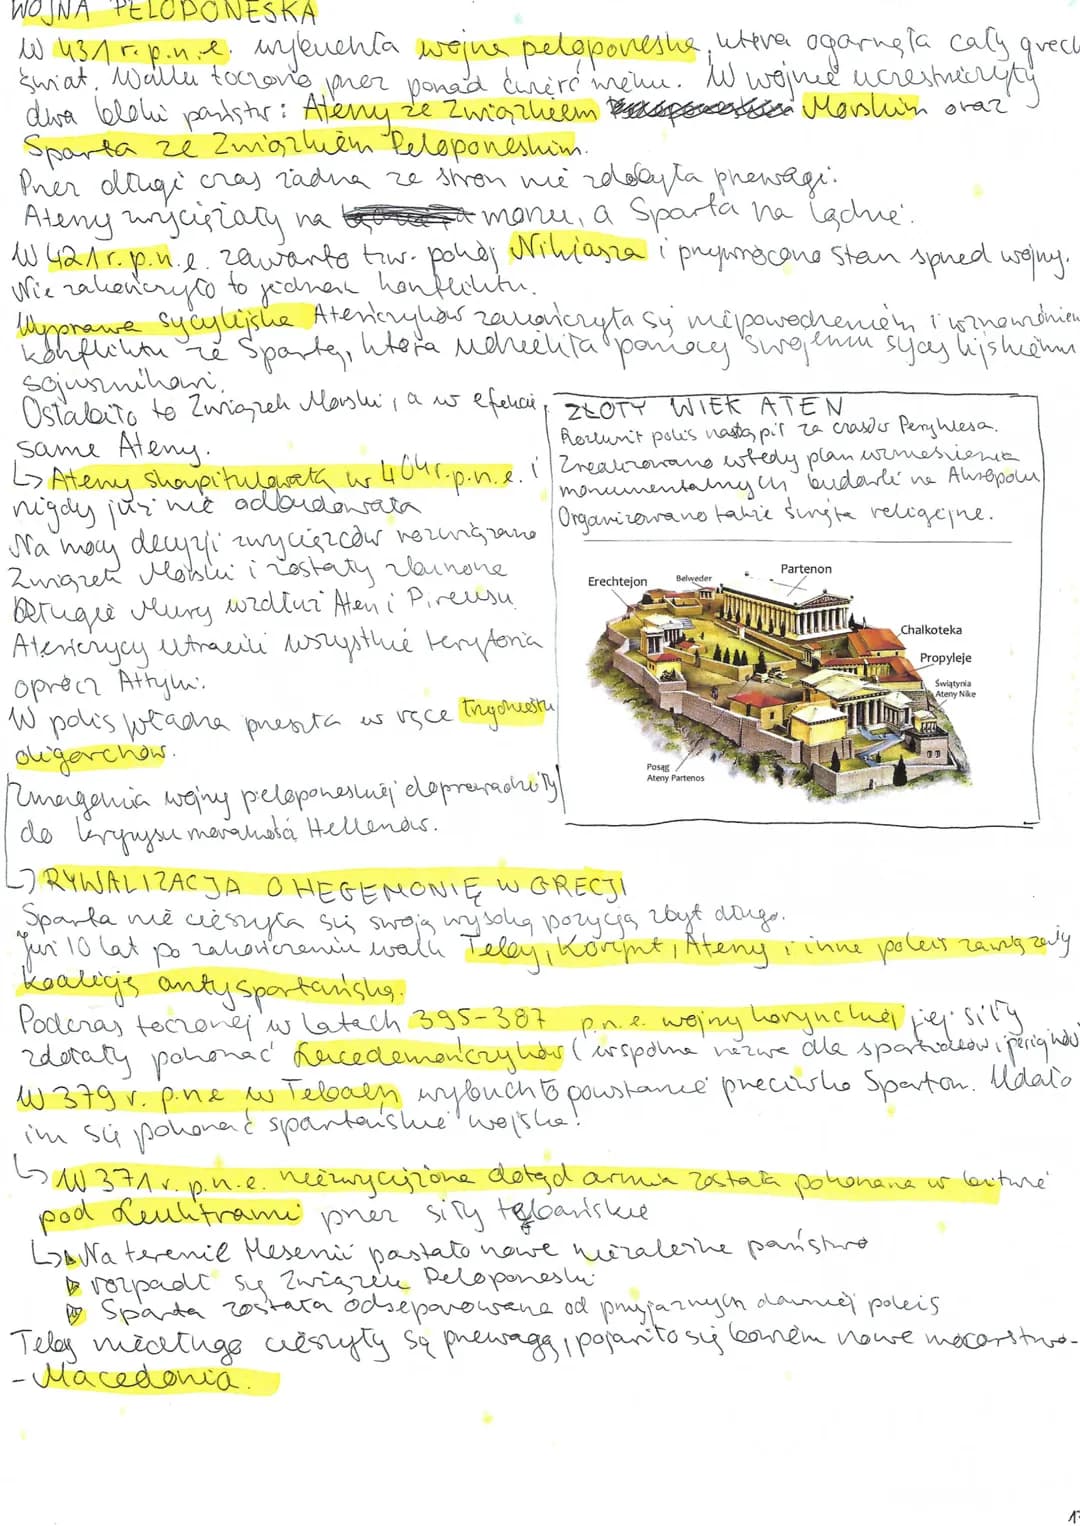 WOJNA PELOPONESKA
W 431 r.p.n.e. wybuchła wojna peloponeska, która ogarnęła cały grec
świat. Walki toczono przez ponad ćwierć wieku. W wojnie uczestniczyły
dwa bloki państw: Ateny ze Związkiem Morskim oraz
Sparta ze Związkiem Peloponeskim.
Przez długi czas żadna ze stron nie zdobyła przewagi.
Ateny zwyciężały na morzu, a Sparta na lądzie.
W 421 r.p.n.e. zawarto tzw. pokój Nikiasza i przywrócono stan sprzed wojny.
Nie zakończyło to jednak konfliktu.
Wyprawa sycylijska Ateńczyków zakończyła się niepowodzeniem i wznowieniem
konfliktu ze Spartą, która udzieliła pomocy swojemu sycylijskiemu
sojusznikowi.
Osłabiło to Związek Morski, a w efekcie
same Ateny.
↳ Ateny skapitulowały w 404 r.p.n.e. i
nigdy już nie odbudowała
Na mocy decyzji zwycięzców rozwiązano
Związek Morski i zostały zburzone
Długie Mury wzdłuż Aten i Pireusu.
Ateńczycy utracili wszystkie terytoria
oprócz Attyki.
W polis władza przeszła w ręce trzydziestu
oligarchów.
Zmagania wojny peloponeskiej doprowadziły
do kryzysu moralności Hellenów.
ZŁOTY WIEK ATEN
Rozkwit polis nastąpił za czasów Peryklesa.
Zrealizowano wtedy plan wzniesienia
monumentalnych budowli na Akropolu
Organizowano także święta religijne.
Erechtejon
Belweder
Partenon
Chalkoteka
Propyleje
Świątynia
Ateny Nike
Posąg
Ateny Partenos
↳ RYWALIZACJA O HEGEMONIĘ W GRECJI
Sparta nie cieszyła się swoją wysoką pozycją zbyt długo.
Już 10 lat po zakończeniu walk Teby, Korynt, Ateny i inne poleis zawiązały
koalicję antyspartańską.
Podczas toczonej w latach 395-387 p.n.e. wojny korynckiej jej siły
zdołały pokonać Lacedemończyków (wspólna nazwa dla spartiatów i periojków
W 379 r. p.n.e w Tebach wybuchło powstanie przeciwko Spartan. Udało
im się pokonać spartańskie wojska.
↳ W 371 r. p.n.e. niezwyciężona dotąd armia została pokonana w bitwie
pod Leuktrami przez siły tebańskie
↳ ▷ Na terenie Mesenii powstało nowe niezależne państwo
▷ rozpadł się Związek Peloponeski
▷ Sparta została odseparowana od przyjaznych dawniej poleis
Teby niedługo cieszyły się przewagą, pojawiło się bowiem nowe mocarstwo-
- Macedonia.